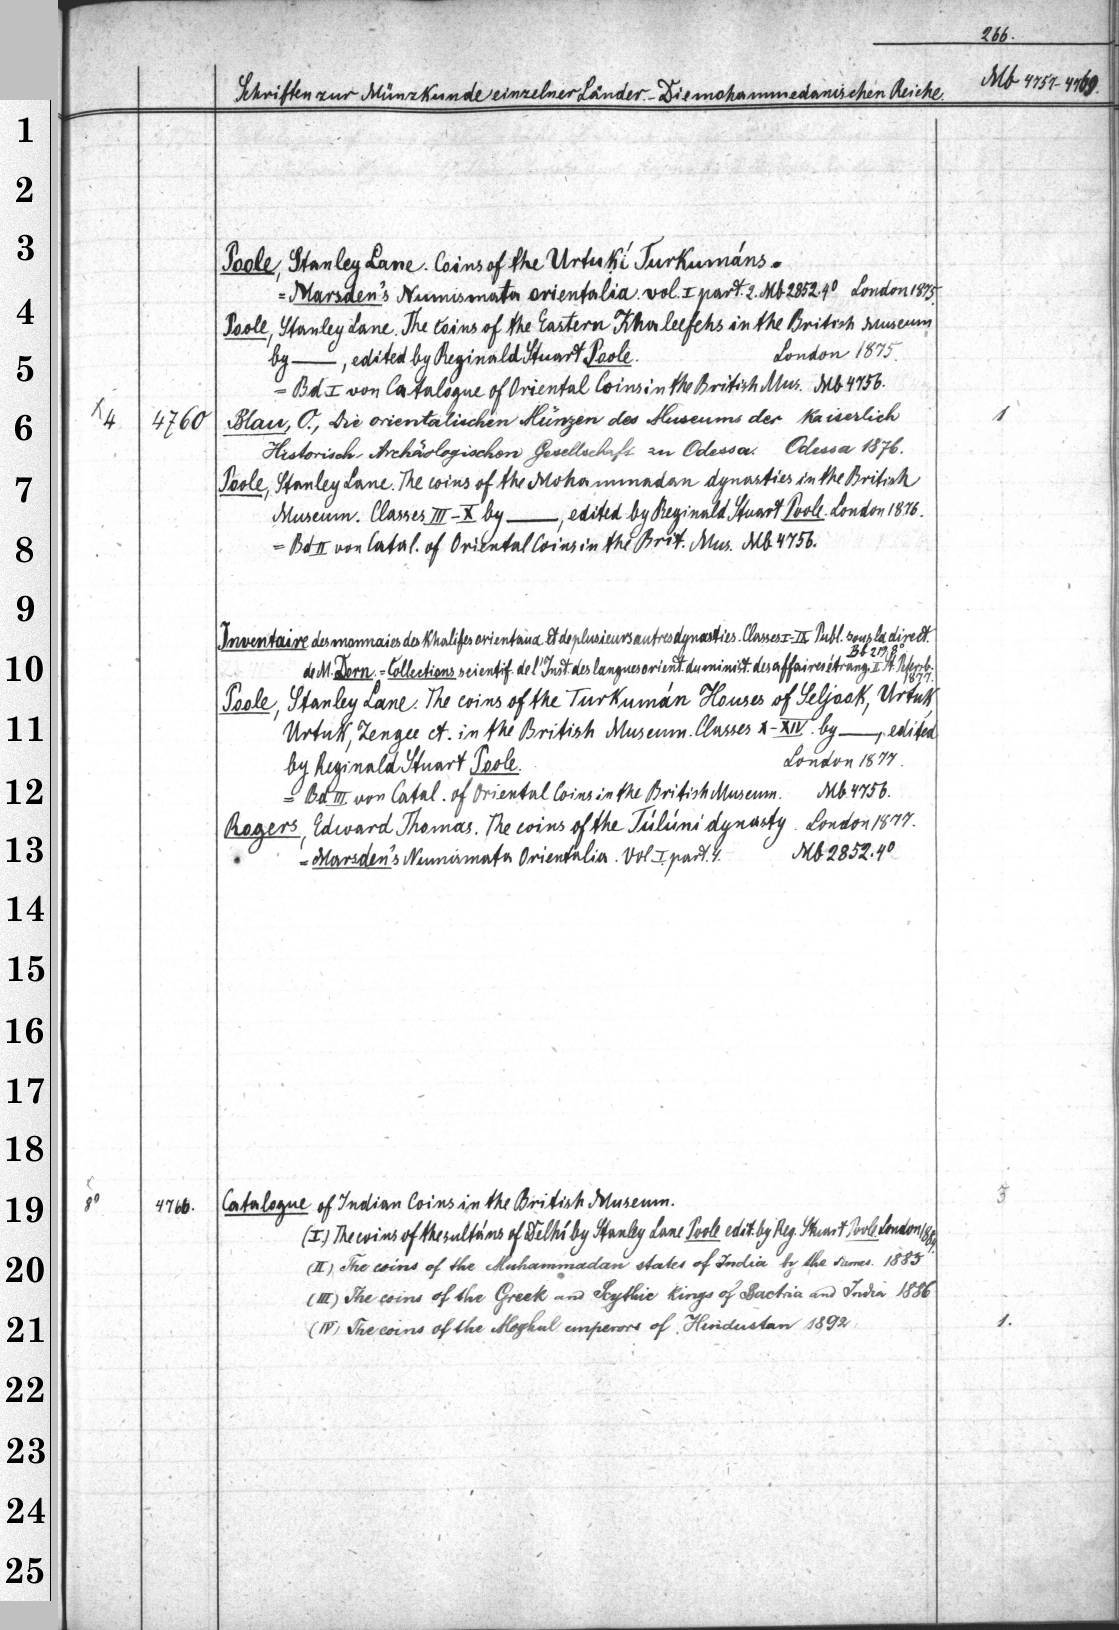 266.
Schriften zur Münzkunde einzelner Länder. - Die mohammedanischen Reiche. Mb 4757-4769.
1
2
3
Poole, Stanley Lane. Coins of the Urtukí Turkumáns.
= Marsden's Numismata orientalia. vol. I part. 2. Mb 2852. 4° London 1875.
4
Poole, Stanley Lane. The coins of the Eastern Khaleefehs in the British Museum
by ——, edited by Reginald Stuart Poole. London 1875
5
= Bd. I von Catalogue of Oriental Coins in the British Mus. Mb 4756.
6
x 4 4760 Blau, O., Die orientalischen Münzen des Museums der Kaiserlich 1
Historisch-Archäologischen Gesellschaft zu Odessa. Odessa 1876.
7
Poole, Stanley Lane. The coins of the Mohammadan dynasties in the British
Museum. Classes III-X by ——, edited by Reginald Stuart Poole. London 1876.
8
= Bd II von Catal. of Oriental Coins in the Brit. Mus. Mb 4756.
9
Inventaire des monnaies des Khalifes orientaux et de plusieurs autres dynasties. Classes I-IX Publ. sous la direct.
Bt 219. 8°
10
de M. Dorn. = Collections scientif. de l'Inst. des langues orient. du minist. des affaires étrang. II St. Petersb.
1877.
Poole, Stanley Lane. The coins of the Turkumán Houses of Seljook, Urtuk,
11
Urtuk, Zengee ct. in the British Museum. Classes X-XIV. by ——, edited
by Reginald Stuart Poole. London 1877.
12
= Bd III von Catal. of Oriental Coins in the British Museum. Mb 4756.
Rogers, Edward Thomas. The coins of the Túlúni dynasty. London 1877.
13
= Marsden's Numismata Orientalia. Vol. I part. 4. Mb 2852. 4°
14
15
16
17
18
19
x
8° 4766. Catalogue of Indian Coins in the British Museum. 3
(I.) The coins of the sultáns of Delhí by Stanley Lane Poole edit. by Reg. Stuart Poole London 1884.
20
(II) The coins of the Muhammadan states of India by the same. 1885
(III) The coins of the Greek and Scythic Kings of Bactria and India 1886
21
(IV) The coins of the Moghul emperors of Hindustan 1892 1.
22
23
24
25